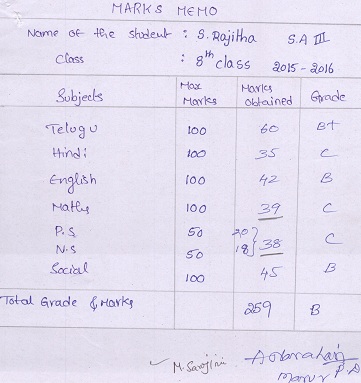 MARKS MEMO
Name of the student : S. Rajitha S.A III
Class : 8th class 2015-2016
Subjects Max Marks Marks Obtained Grade
Telugu 100 60 B+
Hindi 100 35 C
English 100 42 B
Maths 100 39 C
P.S 50 20
N.S 50 18 } 38 C
Social 100 45 B
Total Grade & Marks 259 B
M. Sarojini